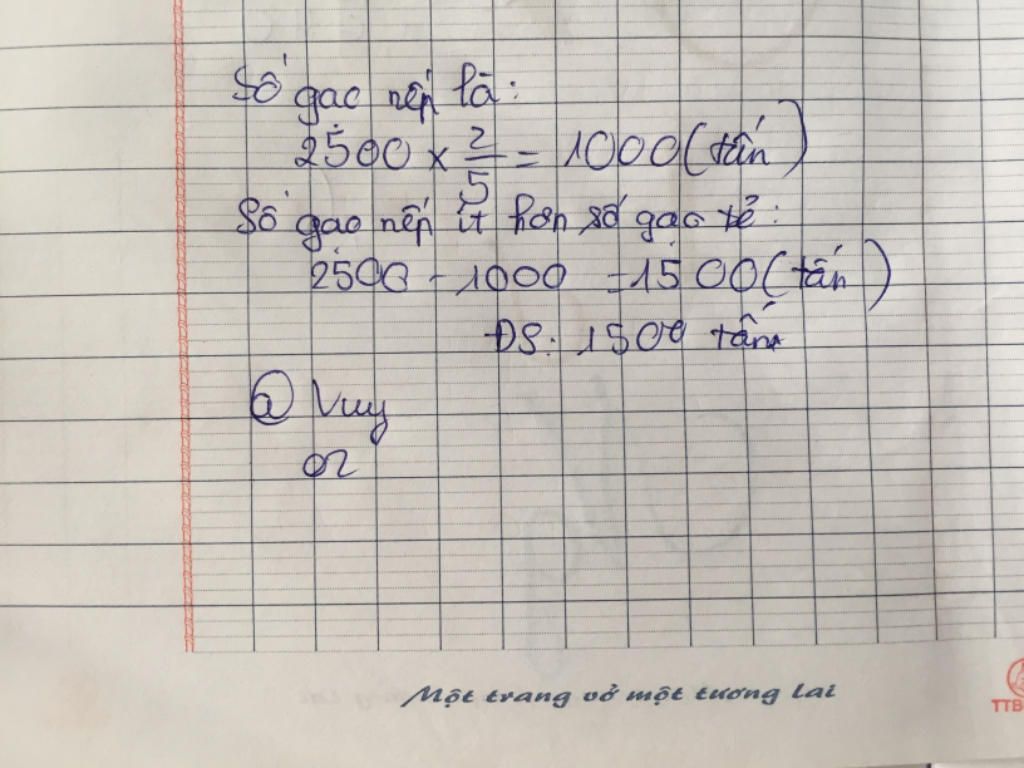 Số gạo nếp là:
2500 × 2/5 = 1000 (tấn)
Số gạo nếp ít hơn số gạo tẻ:
2500 - 1000 = 1500 (tấn)
ĐS: 1500 tấn
@ Vuy
02
Một trang vở một tương lai
TTB